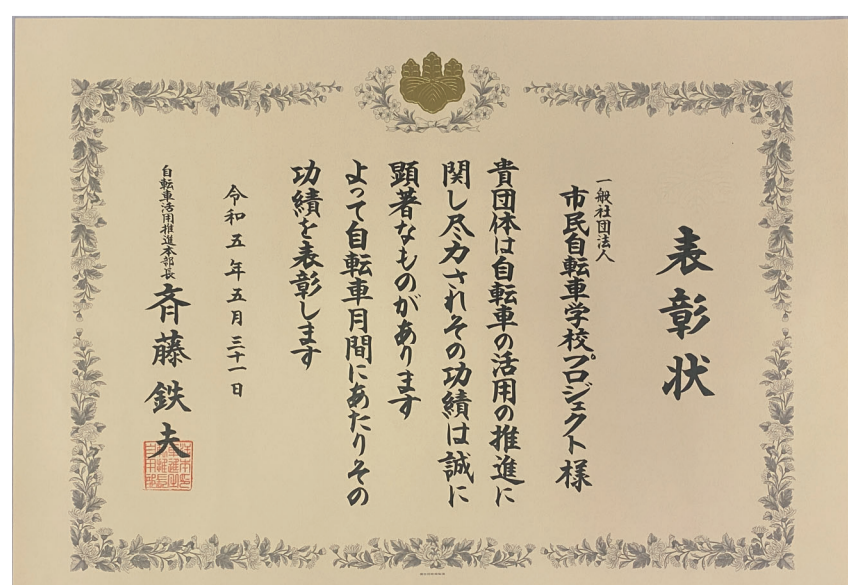 表彰状
一般社団法人
市民自転車学校プロジェクト様
貴団体は自転車の活用の推進に
関し尽力されその功績は誠に
顕著なものがあります
よって自転車月間にあたりその
功績を表彰します
令和五年五月三十一日
自転車活用推進本部長
斉藤鉄夫